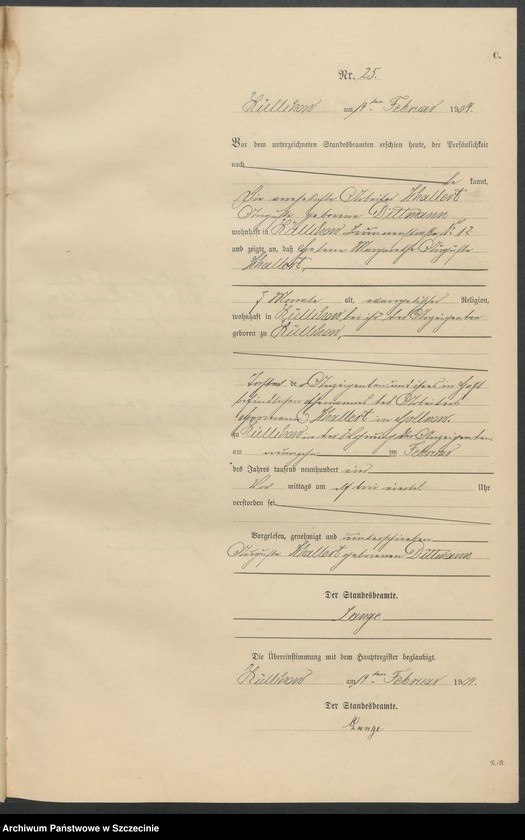 C.
Nr. 25.
Züllchow am 19ten Februar 1904.
Vor dem unterzeichneten Standesbeamten erschien heute, der Persönlichkeit
nach
be kannt,
Die verehelichte Arbeiter Wallert
Auguste geborene Dittmann
wohnhaft in Züllchow Brunnenstraße No 12
und zeigte an, daß Helene Margarethe Auguste
Wallert,
7 Monate alt, evangelischer Religion,
wohnhaft in Züllchow bei ihr der Anzeigenden
geboren zu Züllchow,
Tochter der Anzeigenden und ihres in Haft
befindlichen Ehemannes des Arbeiters
Hermann Wallert in Gollnow.
zu Züllchow in der Wohnung der Anzeigenden
am neunzehn ten Februar
des Jahres tausend neunhundert vier
Vor mittags um drei viertel Uhr
verstorben sei.
Vorgelesen, genehmigt und unterschrieben
Auguste Wallert geborenen Dittmann
Der Standesbeamte.
Lange
Die Übereinstimmung mit dem Hauptregister beglaubigt.
Züllchow am 19ten Februar 1904.
Der Standesbeamte.
Lange
Archiwum Państwowe w Szczecinie